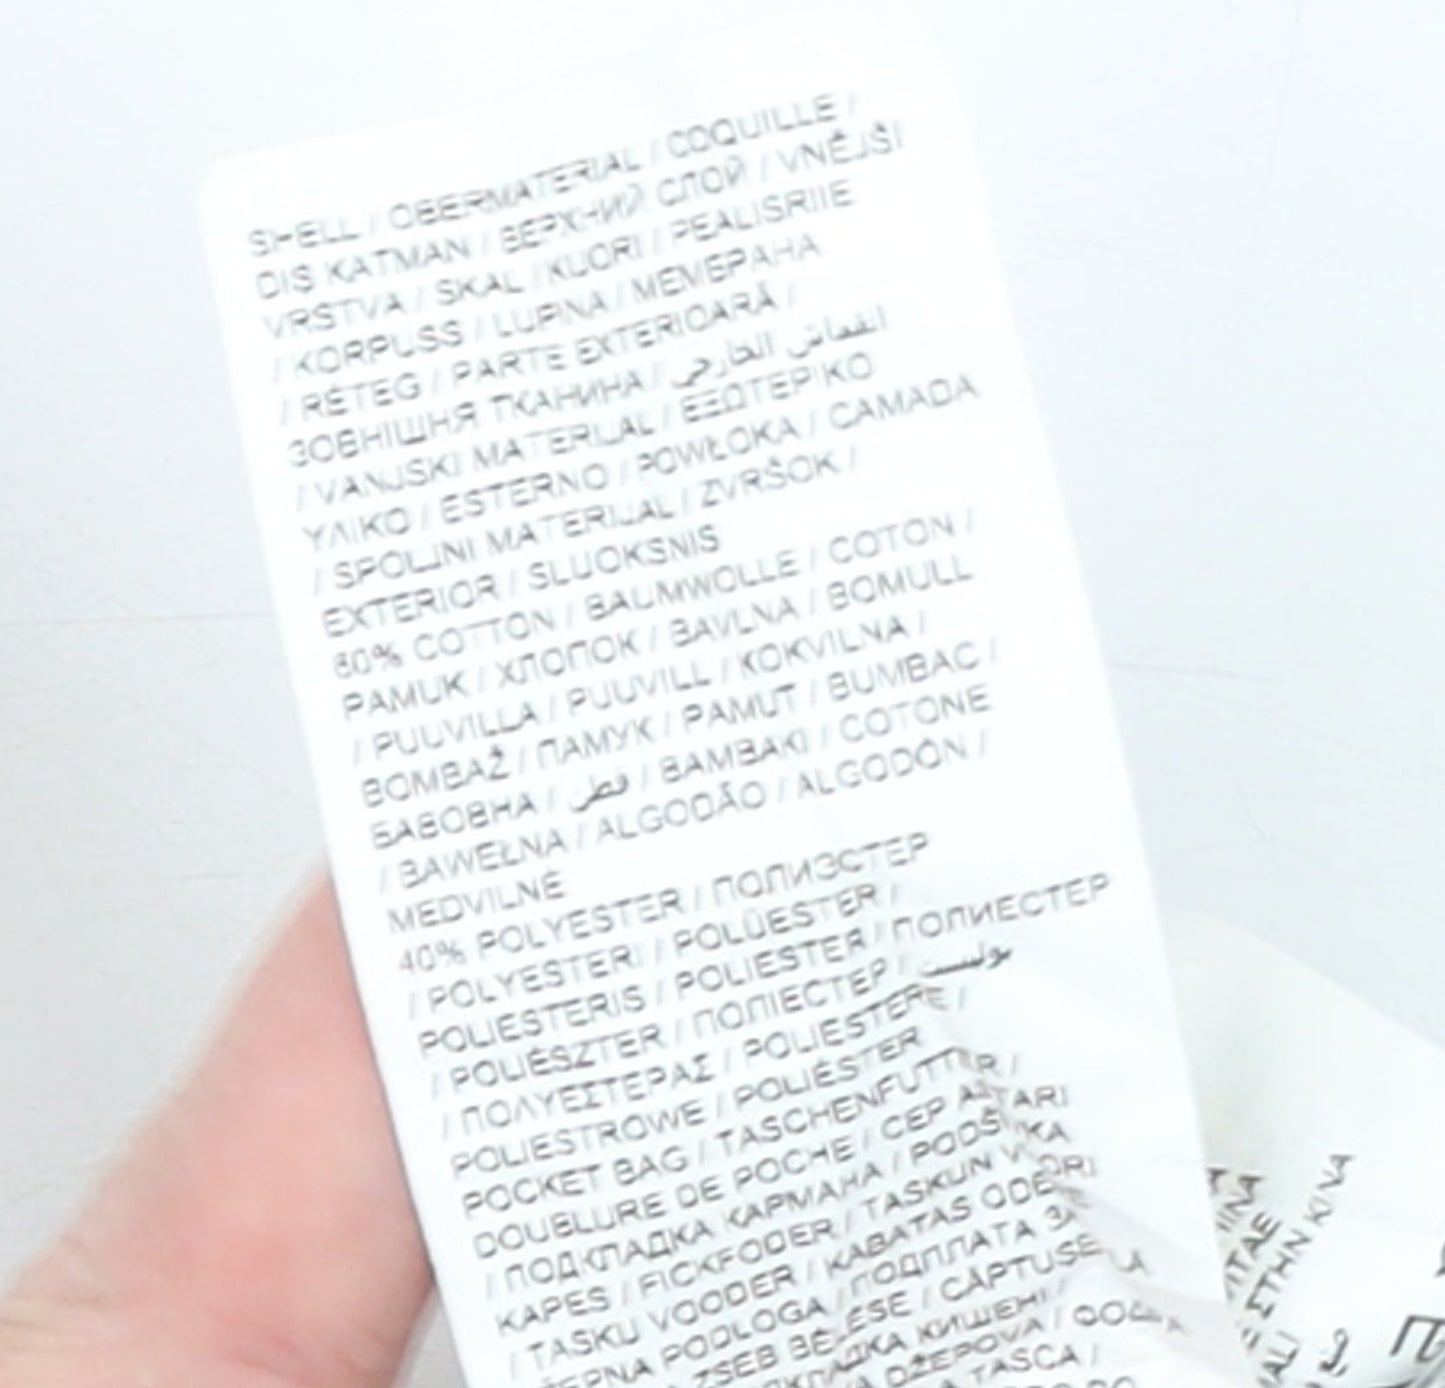 SHELL / OBERMATERIAL / COQUILLE /
DIŞ KATMAN / ВЕРХНИЙ СЛОЙ / VNĚJŠÍ
VRSTVA / SKAL / KUORI / PEALISRIIE
/ KORPUSS / LUPINA / МЕМБРАНА
/ RÉTEG / PARTE EXTERIOARĂ /
ЗОВНІШНЯ ТКАНИНА / القماش الخارجي
/ VANJSKI MATERIJAL / ΕΞΩΤΕΡΙΚΟ
ΥΛΙΚΟ / ESTERNO / POWŁOKA / CAMADA
/ SPOLJNI MATERIJAL / ZVRŠOK /
EXTERIOR / SLUOKSNIS
60% COTTON / BAUMWOLLE / COTON /
PAMUK / ХЛОПОК / BAVLNA / BOMULL
/ PUUVILLA / PUUVILL / KOKVILNA /
BOMBAŽ / ПАМУК / PAMUT / BUMBAC /
БАВОВНА / قطن / BAMBAKI / COTONE
/ BAWEŁNA / ALGODÃO / ALGODÓN /
MEDVILNĖ
40% POLYESTER / ПОЛИЭСТЕР
/ POLYESTERI / POLÜESTER /
POLIESTERIS / POLIESTER / ПОЛИЕСТЕР
/ POLIÉSZTER / ПОЛІЕСТЕР / بوليستر
/ ΠΟΛΥΕΣΤΕΡΑΣ / POLIESTERE /
POLIESTROWE / POLIÉSTER
POCKET BAG / TASCHENFUTTER /
DOUBLURE DE POCHE / CEP ASTARI
/ ПОДКЛАДКА КАРМАНА / PODŠÍVKA
KAPES / FICKFODER / TASKUN VUORI
/ TASKU VOODER / KABATAS ODERE
PODLOGA / ПОДПЛАТА ЗА
ZSEB BÉLÉSE / CĂPTUȘEALA
КИШЕНІ /
DŽEPOVA /
TASCA /
ΣΤΗΝ ΚΙΝΑ